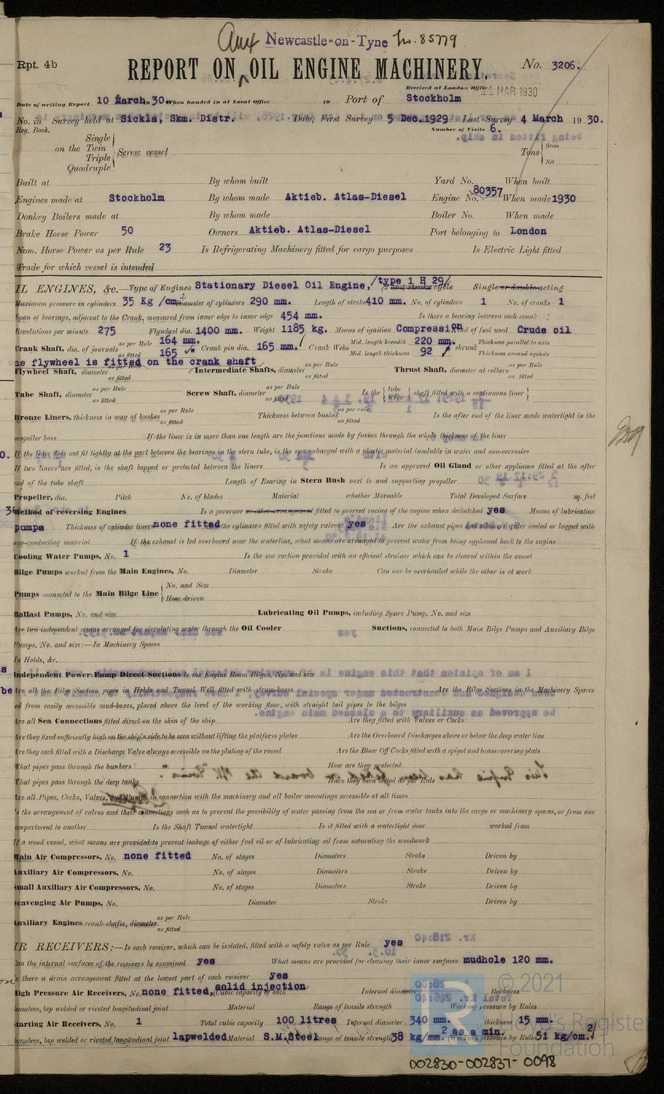 Aux Newcastle-on-Tyne No. 85779
Rpt. 4b
REPORT ON OIL ENGINE MACHINERY. No. 3206.
Received at London Office 21 MAR 1930
Date of writing Report 10 March.30. When handed in at Local Office 19 Port of Stockholm
No. in Survey held at Sickla, Skm. Distr. Date, First Survey 5 Dec.1929 Last Survey 4 March 1930.
Reg. Book. Number of Visits 6.
Single
on the Twin
Triple
Quadruple
Screw vessel
Tons Gross
Net
Built at By whom built Yard No. When built
Engines made at Stockholm By whom made Aktieb. Atlas-Diesel Engine No. 80357 When made 1930
Donkey Boilers made at By whom made Boiler No. When made
Brake Horse Power 50 Owners Aktieb. Atlas-Diesel Port belonging to London
Nom. Horse Power as per Rule 23 Is Refrigerating Machinery fitted for cargo purposes Is Electric Light fitted
Trade for which vessel is intended
IL ENGINES, &c. Type of Engines Stationary Diesel Oil Engine, /type 1 H 29/ Single or double acting
Maximum pressure in cylinders 35 Kg /cm2 Diameter of cylinders 290 mm. Length of stroke 410 mm. No. of cylinders 1 No. of cranks 1
Span of bearings, adjacent to the Crank, measured from inner edge to inner edge 454 mm. Is there a bearing between each crank
Revolutions per minute 275 Flywheel dia. 1400 mm. Weight 1185 kg. Means of ignition Compression Kind of fuel used Crude oil
Crank Shaft, dia. of journals as per Rule 164 mm. as fitted 165 Crank pin dia. 165 mm. Crank Webs Mid. length breadth 220 mm. Mid. length thickness 92 shrunk Thickness parallel to axis Thickness around eyehole
he flywheel is fitted on the crank shaft
Flywheel Shaft, diameter as per Rule as fitted Intermediate Shafts, diameter as per Rule as fitted Thrust Shaft, diameter at collars as per Rule as fitted
Tube Shaft, diameter as per Rule as fitted Screw Shaft, diameter as per Rule as fitted Is the tube screw shaft fitted with a continuous liner
Bronze Liners, thickness in way of bushes as per Rule as fitted Thickness between bushes as per rule as fitted Is the after end of the liner made watertight in the
propeller boss If the liner is in more than one length are the junctions made by fusion through the whole thickness of the liner
If the liner does not fit tightly at the part between the bearings in the stern tube, is the space charged with a plastic material insoluble in water and non-corrosive
If two liners are fitted, is the shaft lapped or protected between the liners Is an approved Oil Gland or other appliance fitted at the after
end of the tube shaft Length of Bearing in Stern Bush next to and supporting propeller
Propeller, dia. Pitch No. of blades Material whether Moveable Total Developed Surface sq. feet
Method of reversing Engines Is a governor or other arrangement fitted to prevent racing of the engine when declutched yes Means of lubrication
pumps Thickness of cylinder liners none fitted Are the cylinders fitted with safety valves yes Are the exhaust pipes and silencers water cooled or lagged with
non-conducting material If the exhaust is led overboard near the waterline, what means are arranged to prevent water from being syphoned back to the engine
Cooling Water Pumps, No. 1 Is the sea suction provided with an efficient strainer which can be cleared within the vessel
Bilge Pumps worked from the Main Engines, No. Diameter Stroke Can one be overhauled while the other is at work
Pumps connected to the Main Bilge Line No. and Size
How driven
Ballast Pumps, No. and size Lubricating Oil Pumps, including Spare Pump, No. and size
Are two independent means arranged for circulating water through the Oil Cooler Suctions, connected to both Main Bilge Pumps and Auxiliary Bilge
Pumps, No. and size:—In Machinery Spaces
In Holds, &c.
Independent Power Pump Direct Suctions to the Engine Room Bilges, No. and size
Are all the Bilge Suction pipes in Holds and Tunnel Well fitted with strum-boxes Are the Bilge Suctions in the Machinery Spaces
led from easily accessible mud-boxes, placed above the level of the working floor, with straight tail pipes to the bilges
Are all Sea Connections fitted direct on the skin of the ship Are they fitted with Valves or Cocks
Are they fixed sufficiently high on the ship's side to be seen without lifting the platform plates Are the Overboard Discharges above or below the deep water line
Are they each fitted with a Discharge Valve always accessible on the plating of the vessel Are the Blow Off Cocks fitted with a spigot and brass covering plate
What pipes pass through the bunkers How are they protected
What pipes pass through the deep tanks Have they been tested as per Rule
Are all Pipes, Cocks, Valves, and Pumps in connection with the machinery and all boiler mountings accessible at all times
Is the arrangement of valves and their connections such as to prevent the possibility of water passing from the sea or from water tanks into the cargo or machinery spaces, or from one
compartment to another Is the Shaft Tunnel watertight Is it fitted with a watertight door worked from
If a wood vessel, what means are provided to prevent leakage of either fuel oil or of lubricating oil from saturating the woodwork
Main Air Compressors, No. none fitted No. of stages Diameters Stroke Driven by
Auxiliary Air Compressors, No. No. of stages Diameters Stroke Driven by
Small Auxiliary Air Compressors, No. No. of stages Diameters Stroke Driven by
Scavenging Air Pumps, No. Diameter Stroke Driven by
Auxiliary Engines crank shafts, diameter as per Rule as fitted
IR RECEIVERS:—Is each receiver, which can be isolated, fitted with a safety valve as per Rule yes
Can the internal surfaces of the receivers be examined yes What means are provided for cleaning their inner surfaces mudhole 120 mm.
Is there a drain arrangement fitted at the lowest part of each receiver yes
High Pressure Air Receivers, No. none fitted, solid injection Cubic capacity of each Internal diameter thickness
Seamless, lap welded or riveted longitudinal joint Material Range of tensile strength Working pressure by Rules
Starting Air Receivers, No. 1 Total cubic capacity 100 litres Internal diameter 340 mm. thickness 15 mm.
Seamless, lap welded or riveted longitudinal joint lapwelded Material S.M.Steel Range of tensile strength 38 kg/mm2 as a min. Working pressure by Rules 51 kg/cm.2
© 2021
Lloyd's Register
Foundation
002830-002837-0098